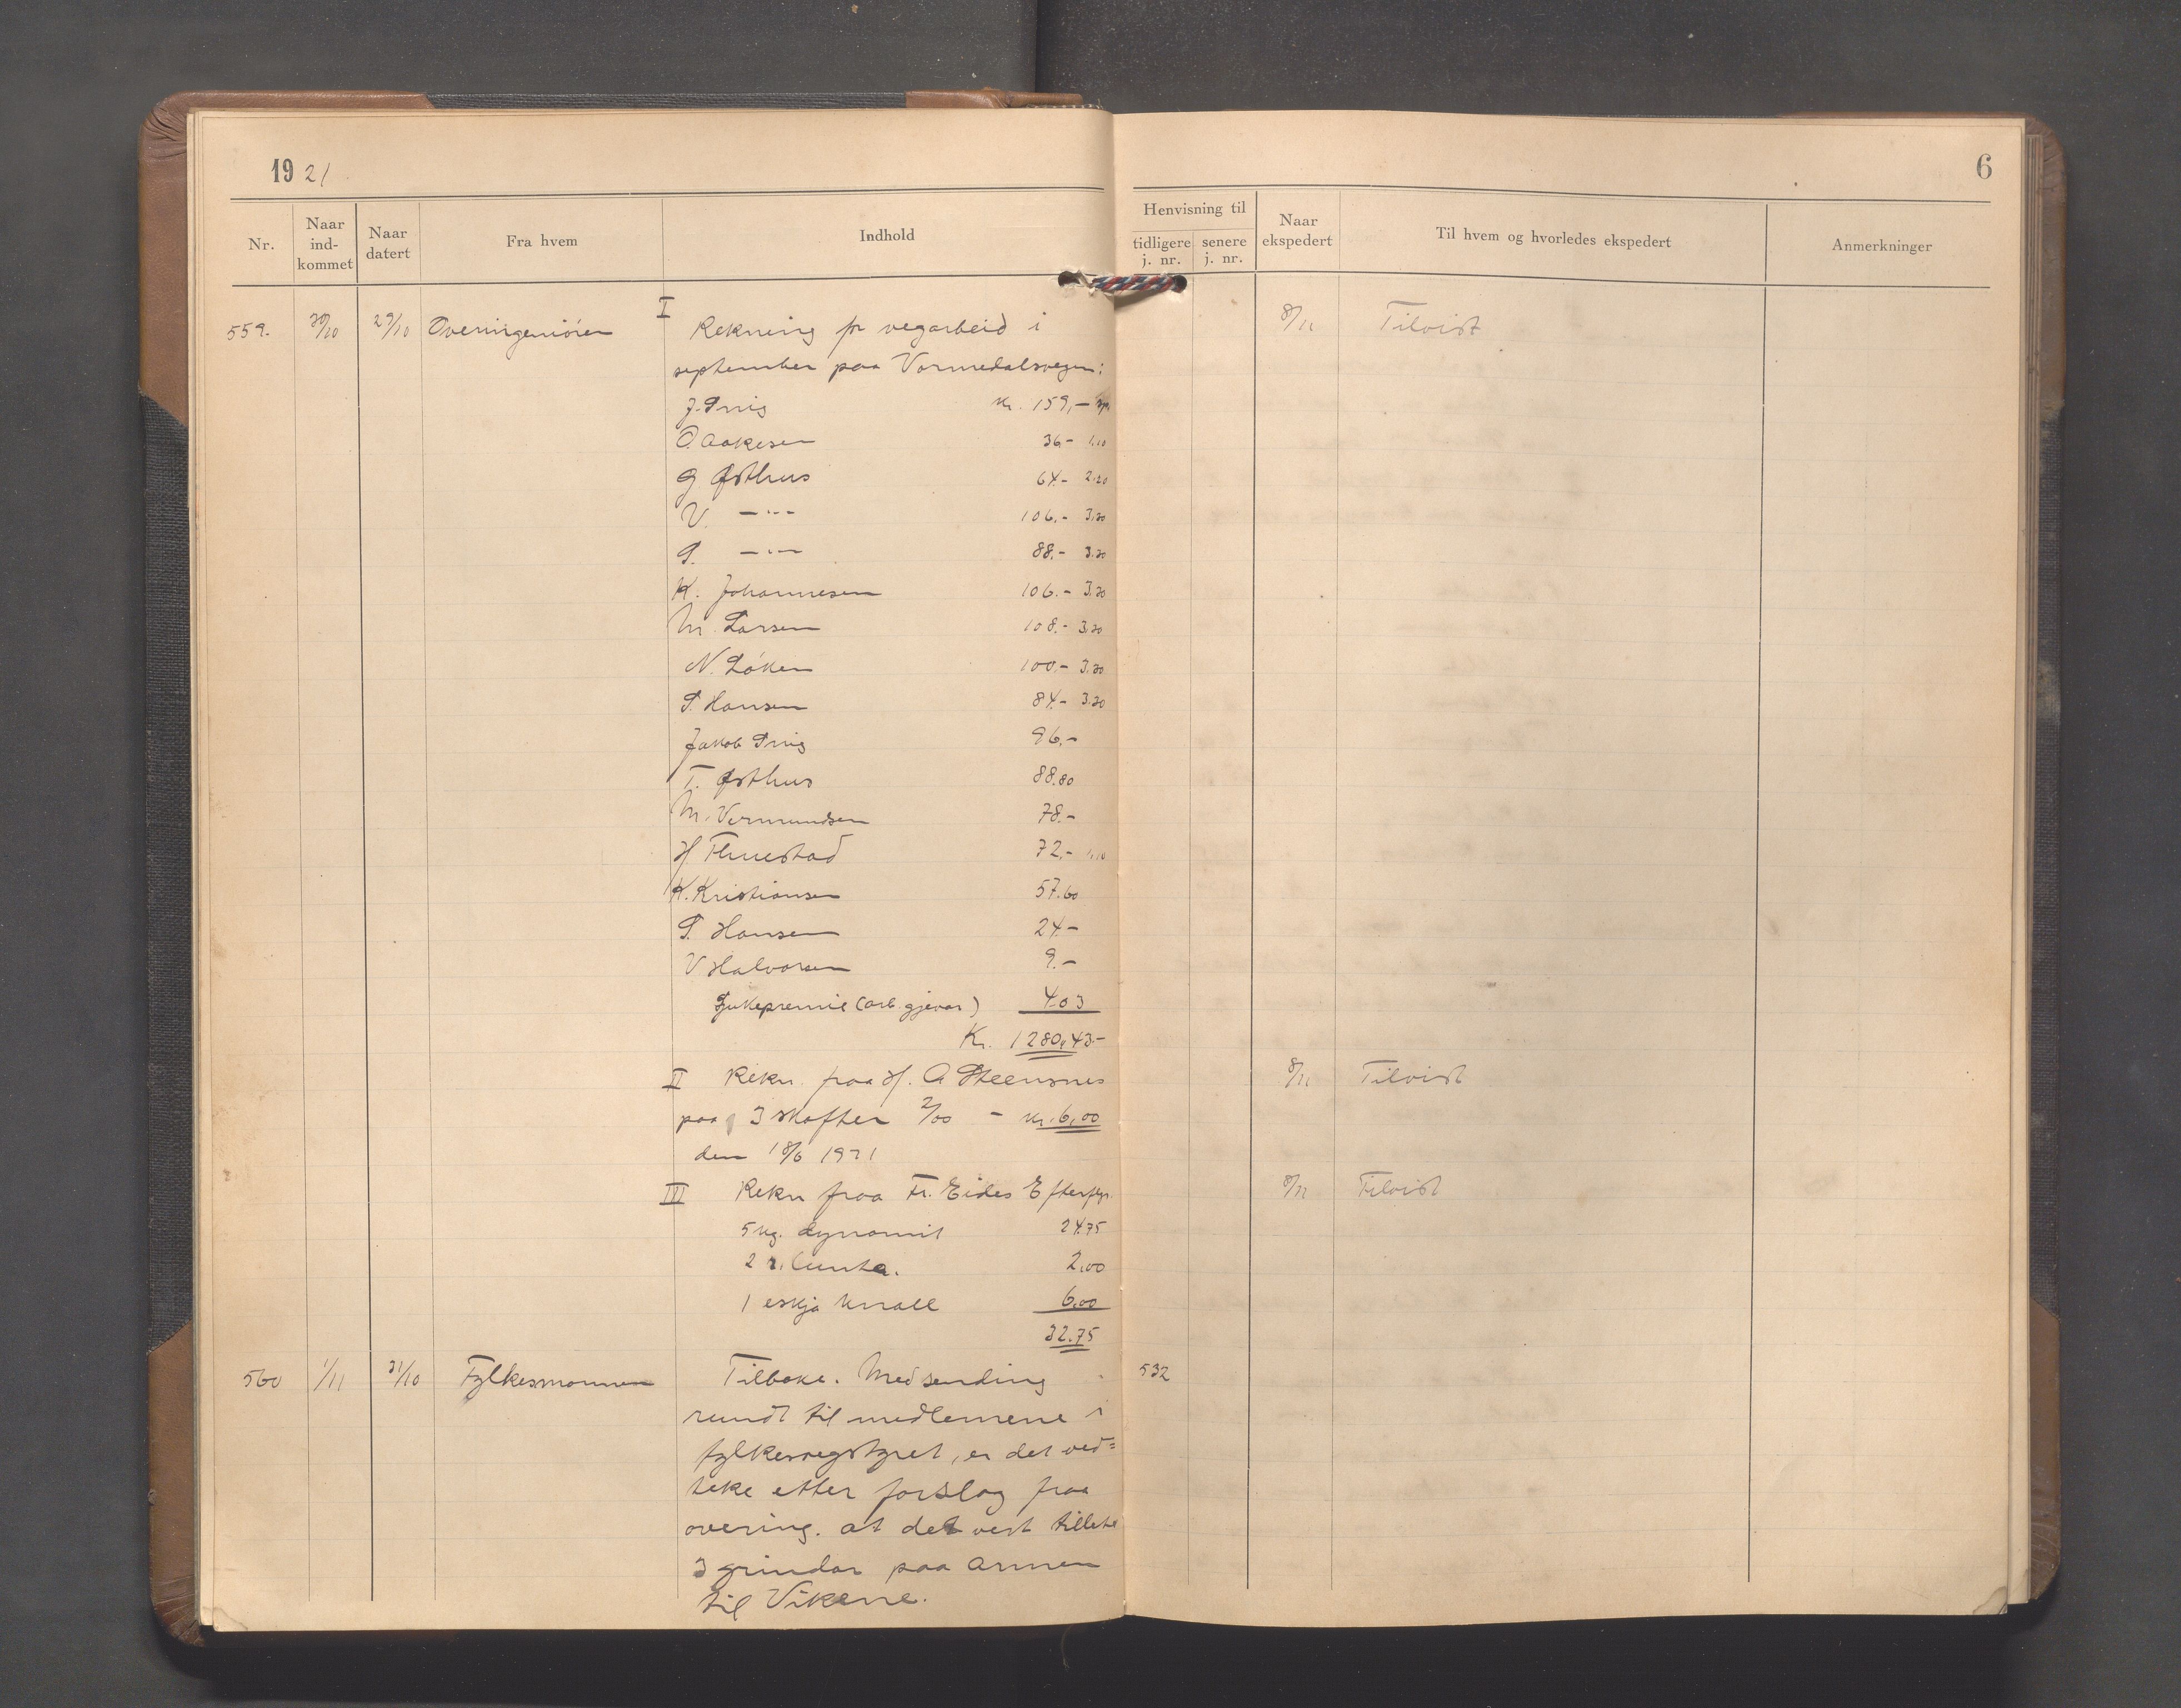 1921
6
Nr.
Naar ind-kommet
Naar datert
Fra hvem
Indhold
Henvisning til
tidligere j. nr.
senere j. nr.
Naar ekspedert
Til hvem og hvorledes ekspedert
Anmerkninger
559. 30/10 29/10 Overingeniören I Rekning fr vegarbeid i 8/11 Tilvist
september paa Vormedalsvegen:
J. Kr. 159,-
O. Aakesen 36.- 1.10
G. Østhus 64.- 2.20
V. -"- 106.- 3.30
S. -"- 88.- 3.30
K. Johannesen 106.- 3.30
M. Larsen 108.- 3.30
N. Löken 100.- 3.30
S. Hansen 84.- 3.30
Jakob 96.-
T. Østhus 88.80
M. Vermundsen 78.-
H. 72.- 1.10
K. Kristiansen 57.60
S. Hansen 24.-
V Halvorsen 9.-
Sjukepremie (arb. gjevar) 4.03
Kr. 1280,43.-
II Rekn. fraa H. A Steensnes 8/11 Tilvist
paa 3 skafter 2/00 - kr. 6,00
den 18/6 1921
III Rekn fraa Fr. Eides Efterflgr. 8/11 Tilvist
5 kg. dynamit 24.75
2 r. lunta. 2,00
1 eskja knall 6.00
32.75
560 1/11 31/10 Fylkesmannen Tilbake. Med sending 532
rundt til medlemene i
fylkesvegstyret, er det ved=
teke etter forslag fraa
overing. at det vert tillete
3 grindar paa armen
til Vikene.